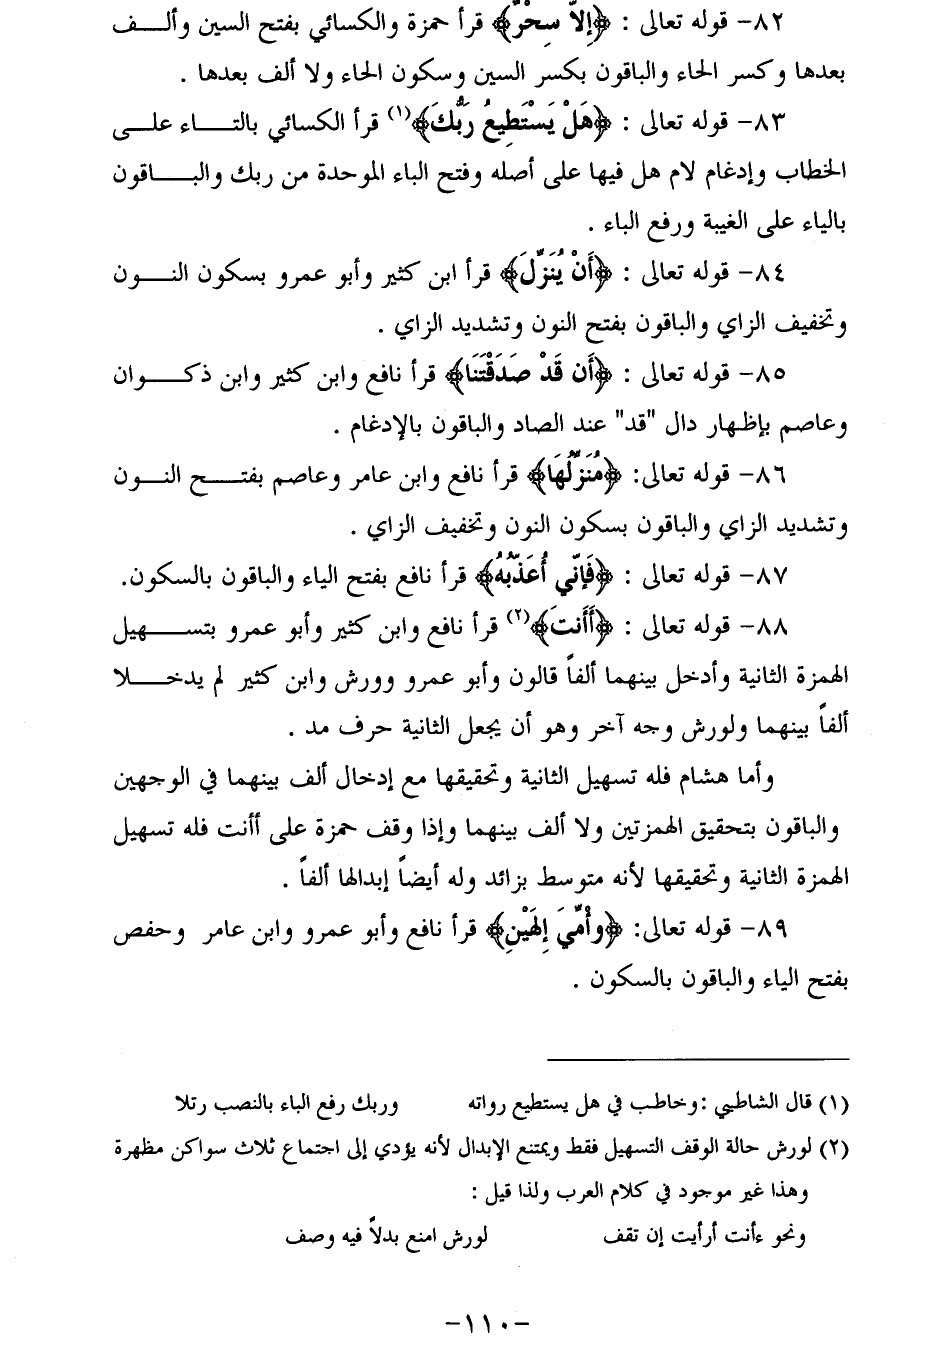 ٨٢- قوله تعالى : ﴿إِلاَّ سِحْرٌ﴾ قرأ حمزة والكسائي بفتح السين وألـــف
بعدها وكسر الحاء والباقون بكسر السين وسكون الحاء ولا ألف بعدها .
٨٣- قوله تعالى : ﴿هَلْ يَسْتَطِيعُ رَبُّكَ﴾(١) قرأ الكسائي بالتـــاء علـــى
الخطاب وإدغام لام هل فيها على أصله وفتح الباء الموحدة من ربك والبـــاقون
بالياء على الغيبة ورفع الباء .
٨٤- قوله تعالى : ﴿أَنْ يُنَزِّلَ﴾ قرأ ابن كثير وأبو عمرو بسكون النـــون
وتخفيف الزاي والباقون بفتح النون وتشديد الزاي .
٨٥- قوله تعالى : ﴿أَن قَدْ صَدَقْتَنَا﴾ قرأ نافع وابن كثير وابن ذكـــوان
وعاصم بإظهار دال "قد" عند الصاد والباقون بالإدغام .
٨٦- قوله تعالى: ﴿مُنَزِّلُهَا﴾ قرأ نافع وابن عامر وعاصم بفتـــح النـــون
وتشديد الزاي والباقون بسكون النون وتخفيف الزاي .
٨٧- قوله تعالى : ﴿فَإِنِّي أُعَذِّبُهُ﴾ قرأ نافع بفتح الياء والباقون بالسكون.
٨٨- قوله تعالى : ﴿أَأَنتَ﴾(٢) قرأ نافع وابن كثير وأبو عمرو بتســـهيل
الهمزة الثانية وأدخل بينهما ألفاً قالون وأبو عمرو وورش وابن كثير لم يدخـــلا
ألفاً بينهما ولورش وجه آخر وهو أن يجعل الثانية حرف مد .
وأما هشام فله تسهيل الثانية وتحقيقها مع إدخال ألف بينهما في الوجهين
والباقون بتحقيق الهمزتين ولا ألف بينهما وإذا وقف حمزة على أأنت فله تسهيل
الهمزة الثانية وتحقيقها لأنه متوسط بزائد وله أيضاً إبدالها ألفاً .
٨٩- قوله تعالى: ﴿وأُمِّيَ إِلهَيْنِ﴾ قرأ نافع وأبو عمرو وابن عامر وحفص
بفتح الياء والباقون بالسكون .
(١) قال الشاطبي :وخاطب في هل يستطيع رواته وربك رفع الباء بالنصب رتلا
(٢) لورش حالة الوقف التسهيل فقط ويمتنع الإبدال لأنه يؤدي إلى اجتماع ثلاث سواكن مظهرة
وهذا غير موجود في كلام العرب ولذا قيل :
ونحو ءأنت أرأيت إن تقف لورش امنع بدلاً فيه وصف
-١١٠-